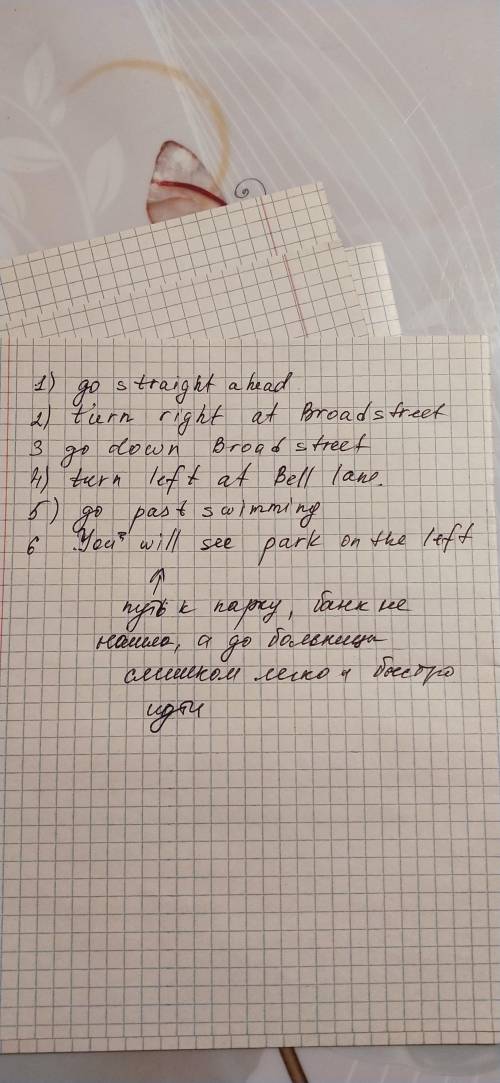 1) go straight ahead
2) turn right at Broadstreet
3 go down Broadstreet
4) turn left at Bell lane.
5) go past swimming
6 You will see park on the left
путь к парку, банк не
нашла, а до больницы
слишком легко и быстро
идти